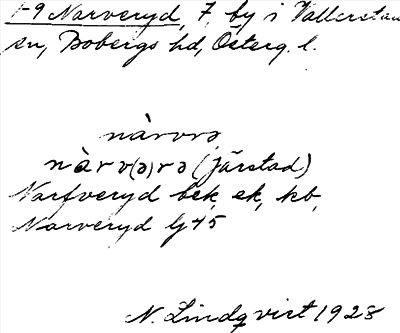 1-9 Narveryd, 7, by i Vallerstads
sn, Bobergs hd, Österg. l.
nàrvrə
nàrv(ə)rə (Järstad)
Narfveryd bek, ek, kb,
Narveryd Gj 45
N. Lindqvist 1928